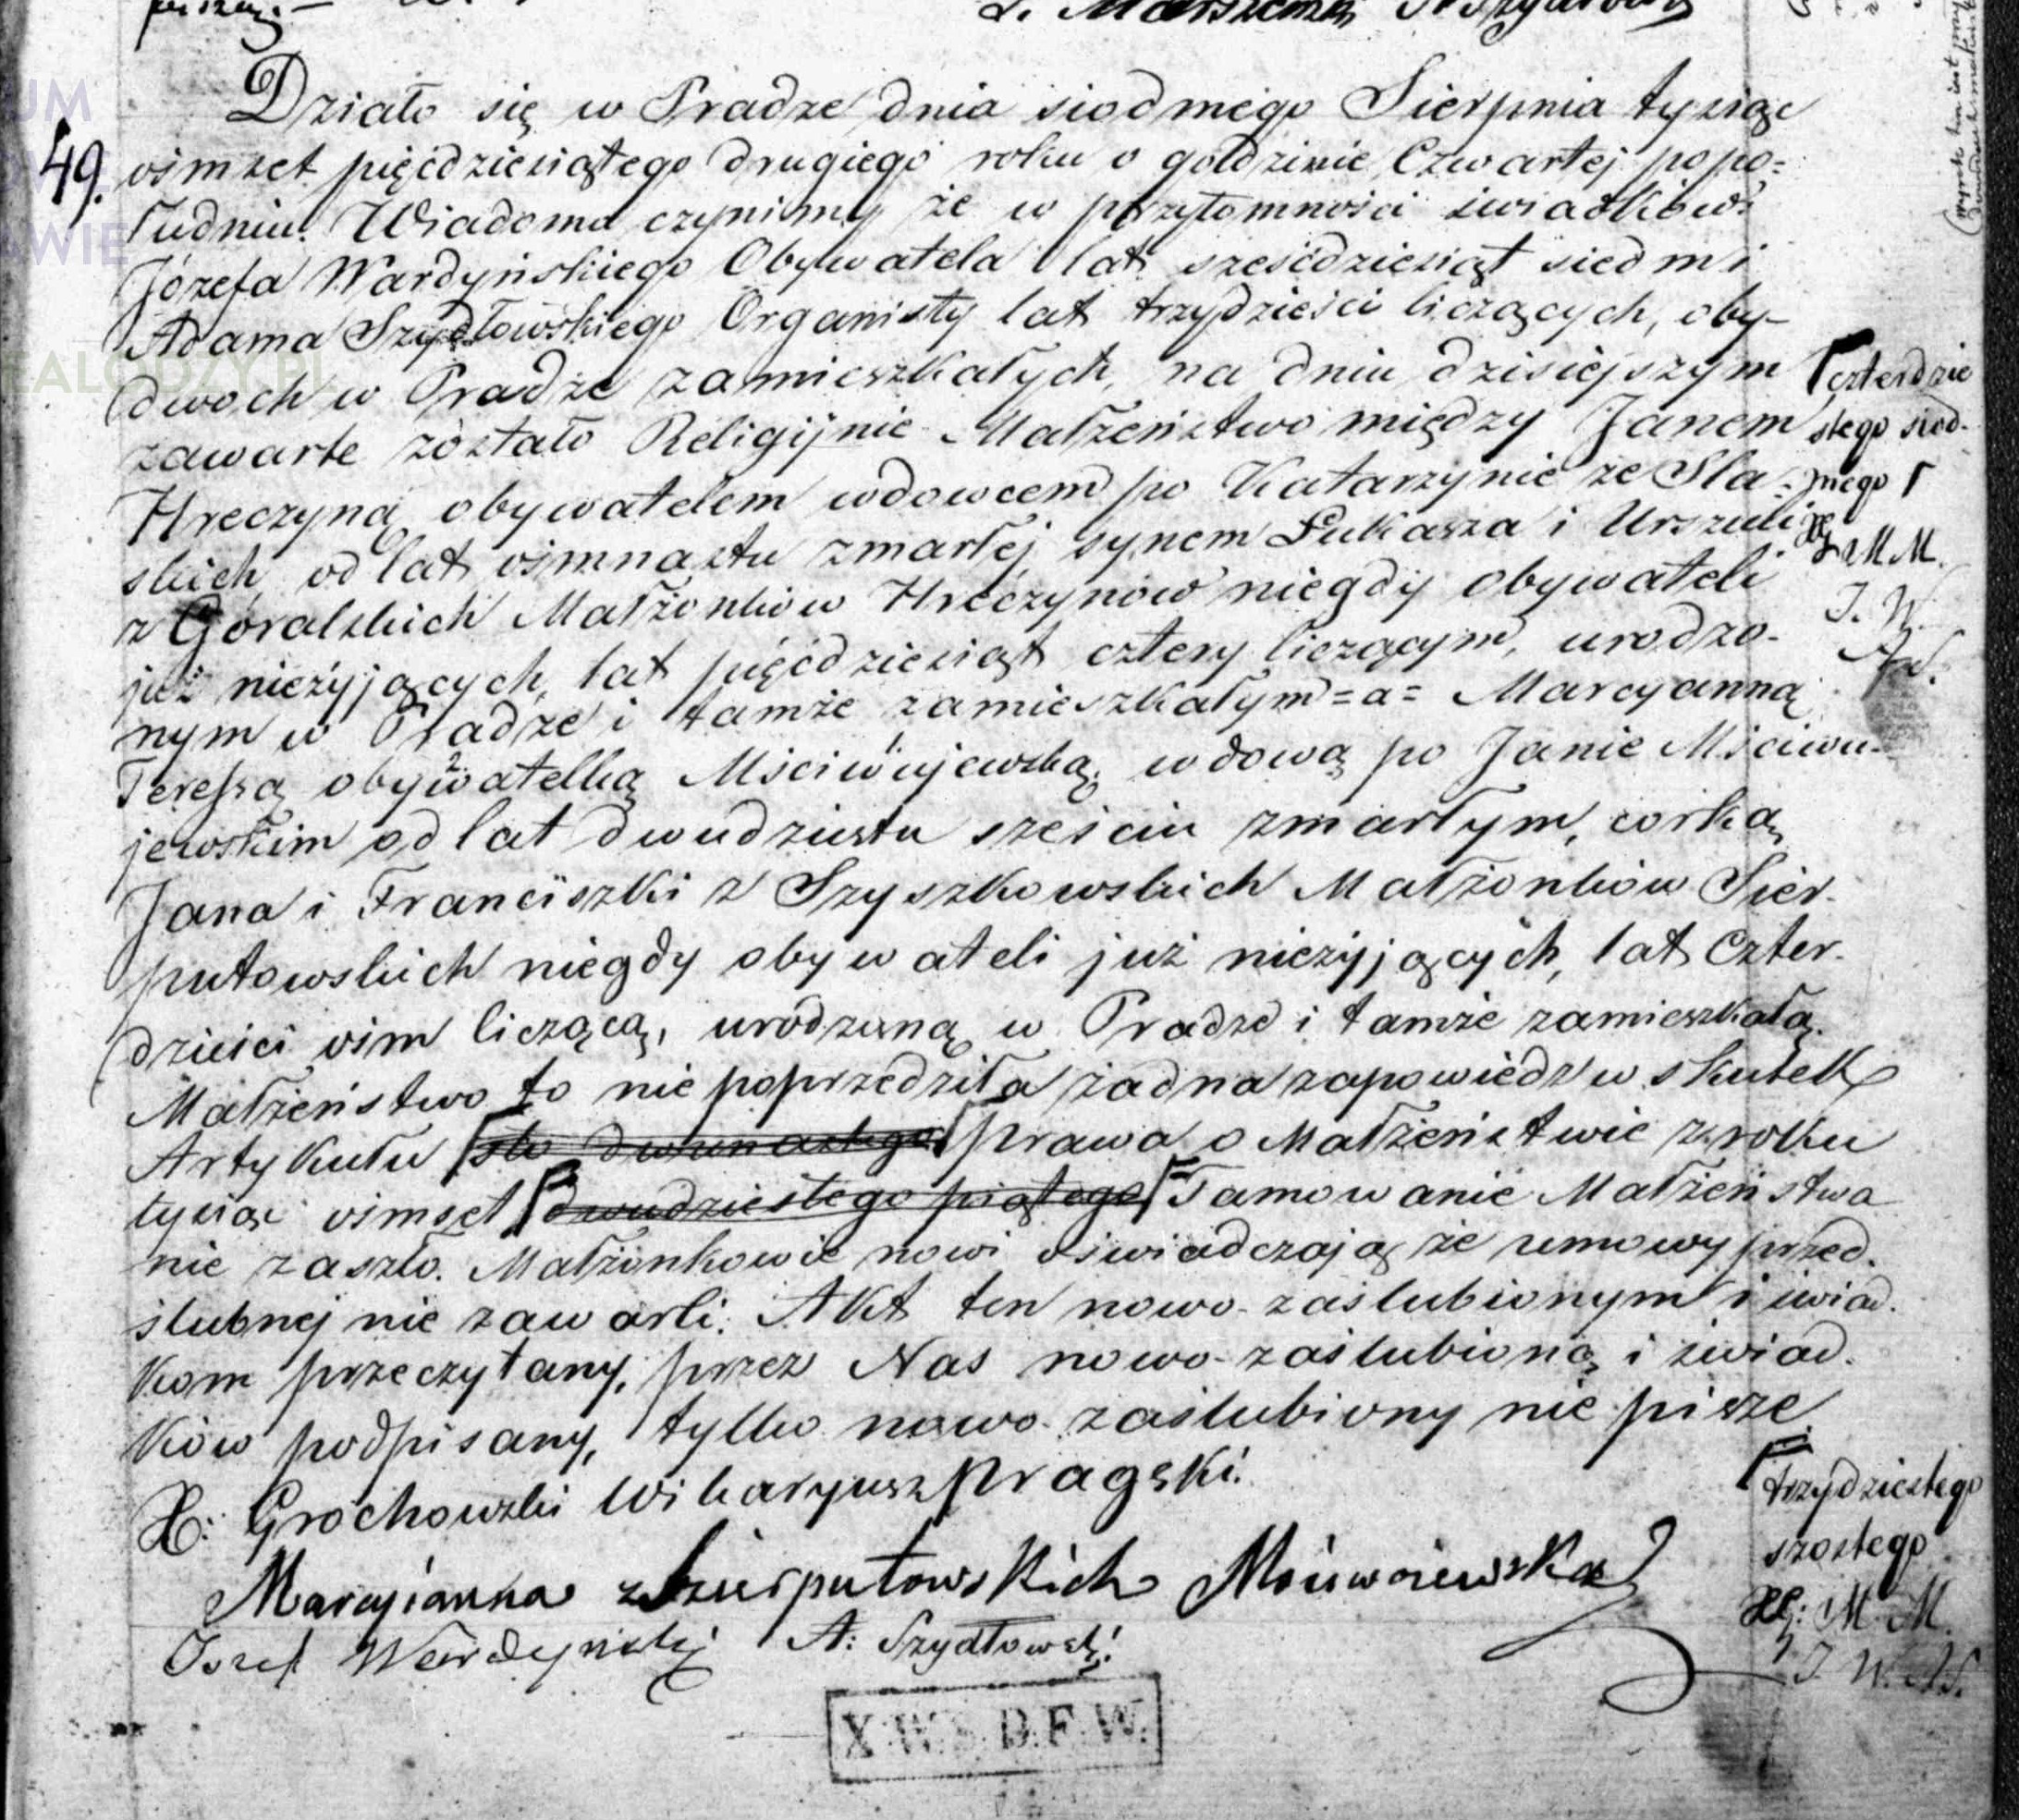 49.
Działo się w Pradze dnia siodmego Sierpnia tysiąc
osmset pięćdziesiątego drugiego roku o godzinie Czwartej popo-
łudniu. Wiadomo czynimy że w przytomności świadków
Józefa Wardyńskiego Obywatela lat sześćdziesiąt siedm i
Adama Szydłowskiego Organisty lat trzydzieści liczących, oby-
dwoch w Pradze zamieszkałych, na dniu dzisiejszym
zawarte zostało Religijnie Małżeństwo między Janem
Hreczyną obywatelem wdowcem po Katarzynie ze Sla-
skich od lat ośmnastu zmarłej, synem Łukasza i Urszuli
z Góralskich Małżonków Hreczynów niegdy obywateli
już nieżyjących, lat pięćdziesiąt cztery liczącym, urodzo-
nym w Pradze i tamże zamieszkałym =a= Marcyanną
Teressą obywatelką Mściwujewską, wdową po Janie Mściwu-
jewskim od lat dwudziestu sześciu zmarłym, córką
Jana i Franciszki z Szyszkowskich Małżonków Sier-
putowskich niegdy obywateli już nieżyjących, lat Czter-
dzieści ośm liczącą, urodzoną w Pradze i tamże zamieszkałą.
Małżeństwo to nie poprzedziła żadna zapowiedz w skutek
Artykułu sto dwunastego prawa o Małżeństwie z roku
tysiąc ośmset dwudziestego piątego Tamowanie Małżeństwa
nie zaszło. Małżonkowie nowi oświadczają że umowy przed-
ślubnej nie zawarli. Akt ten nowo-zaślubionym i świad-
kom przeczytany, przez Nas nowo-zaślubioną i świad-
ków podpisany, tylko nowo-zaślubiony nie pisze
X: Grochowski Wikaryusz Pragski.
Marcyianna z Sierputowskich Mściwoiewska
Josef Wardynski A: Szydłowski
czterdzie
stego siod-
mego
XG M M.
J. W.
AS.
trzydziestego
szostego
XG: M. M.
J W. AS.
X.W.S.D.F.W.